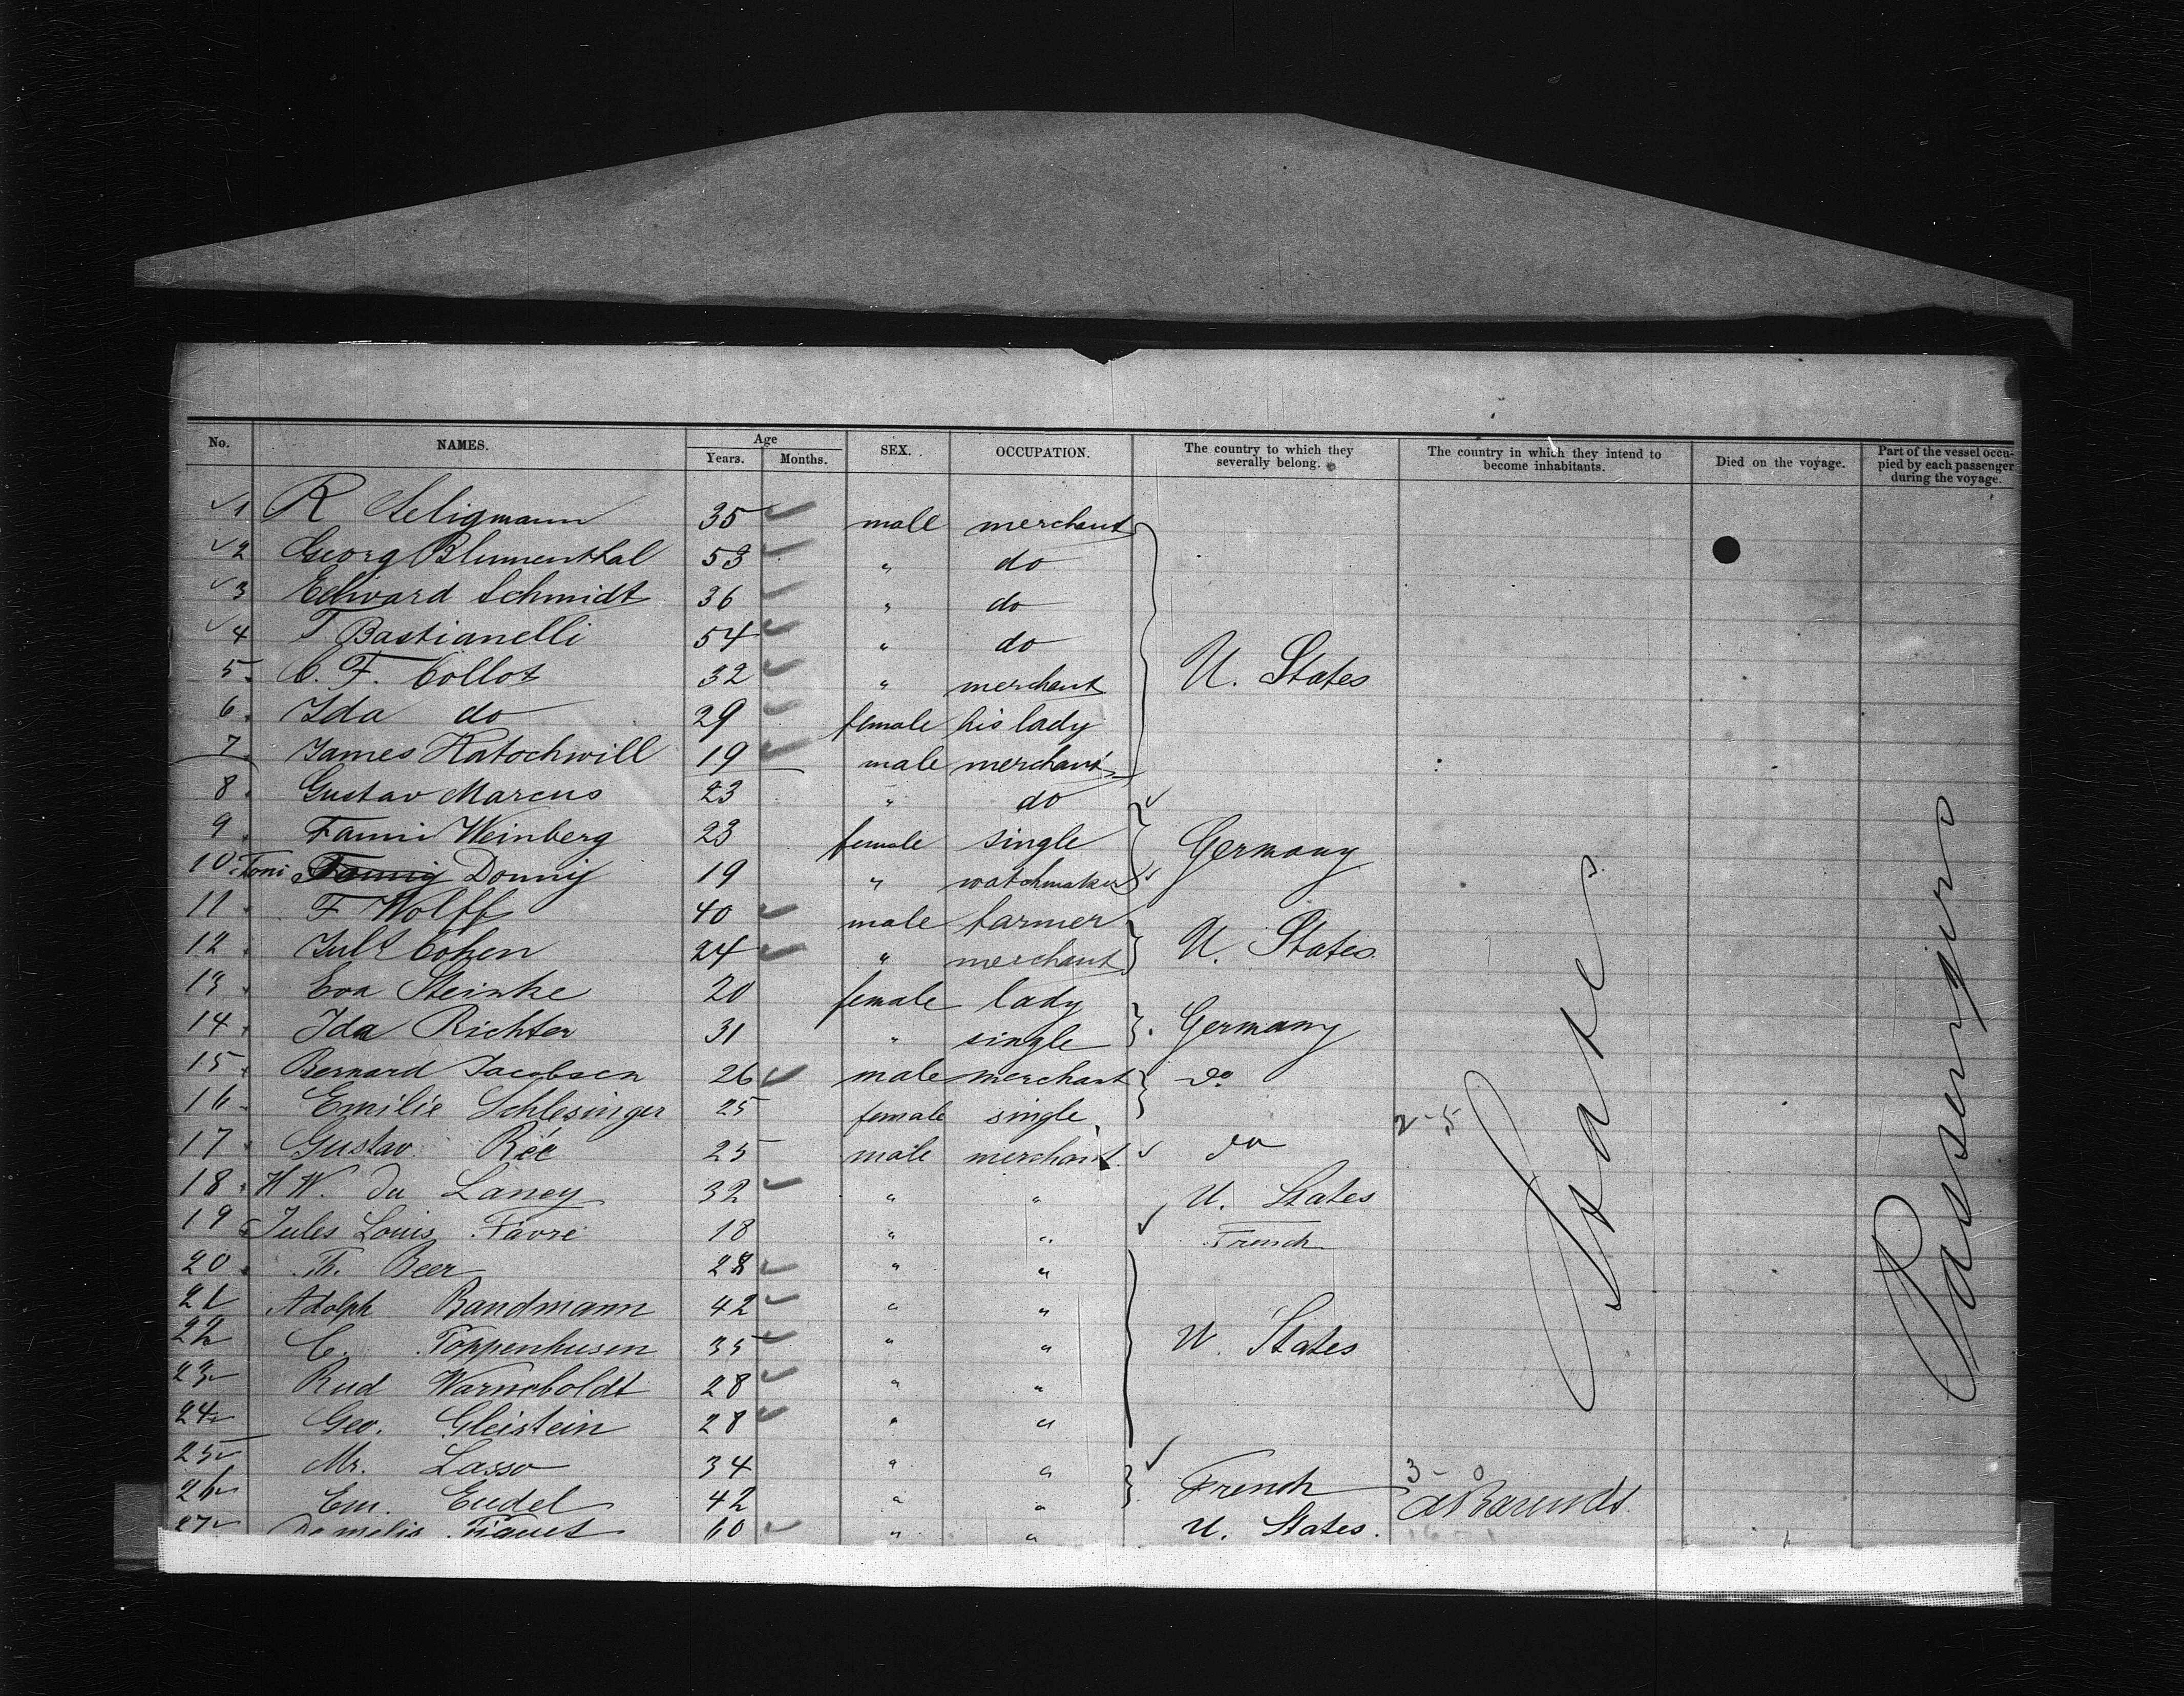 No. NAMES. Age Years. Months. SEX. OCCUPATION. The country to which they severally belong. The country in which they intend to become inhabitants. Died on the voyage. Part of the vessel occupied by each passenger during the voyage.
1 R Seligmann 35 male merchant
2 Georg Blumenthal 53 " do
3 Edward Schmidt 36 " do
4 Bastianelli 54 " do
5. C. F. Collot 32 " merchant U. States
6. Ida do 29 female his lady
7. James Katochwill 19 male merchant
8. Gustav Marcus 23 " do
9. Fanni Weinberg 23 female single Germany
10. Toni Fanny Donny 19 " watchmaker
11. F Wolff 40 male farmer
12. Jul Cohen 24 " merchant U. States.
13. Eva Steinke 20 female lady
14. Ida Richter 31 " single Germany
15. Bernard Jacobsen 26 male merchant do
16. Emilie Schlesinger 25 female single 2-5
17. Gustav Rée 25 male merchant. do
18. H W. du Laney 32 " " U. States
19. Jules Louis Favre 18 " " French
20. Th. Beer 28 " "
21 Adolph Bandmann 42 " "
22 C. Poppenhusen 35 " " U. States
23 Rud Warneboldt 28 " "
24 Geo. Gleistein 28 " "
25 Mr. Lasso 34 " "
26 Em. Eudel 42 " " French 3-0
27 60 " " U. States.
States
Passengers